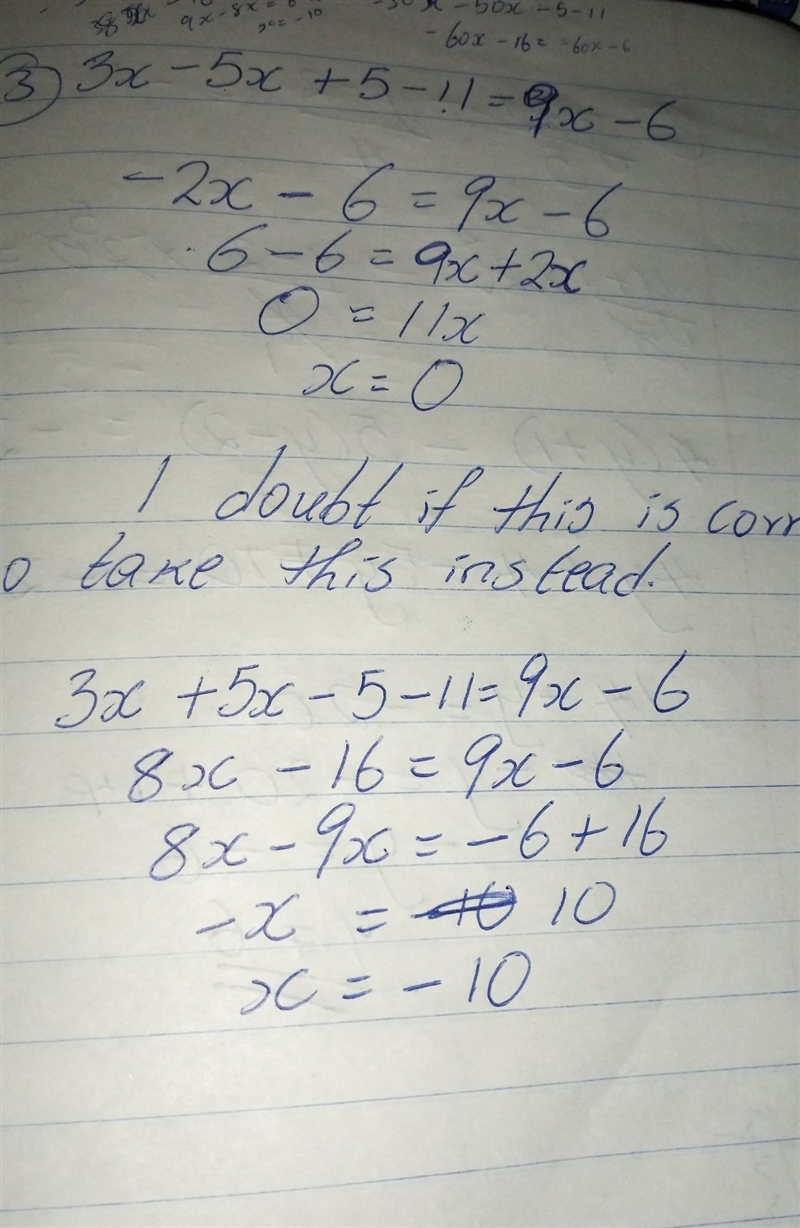 9x-8x=
x=-10
-50x-5-11
-60x-16=-60x-6
3) 3x-5x+5-11=9x-6
-2x-6=9x-6
6-6=9x+2x
0=11x
x=0
I doubt if this is corr
o take this instead.
3x+5x-5-11=9x-6
8x-16=9x-6
8x-9x=-6+16
-x = 10
x=-10